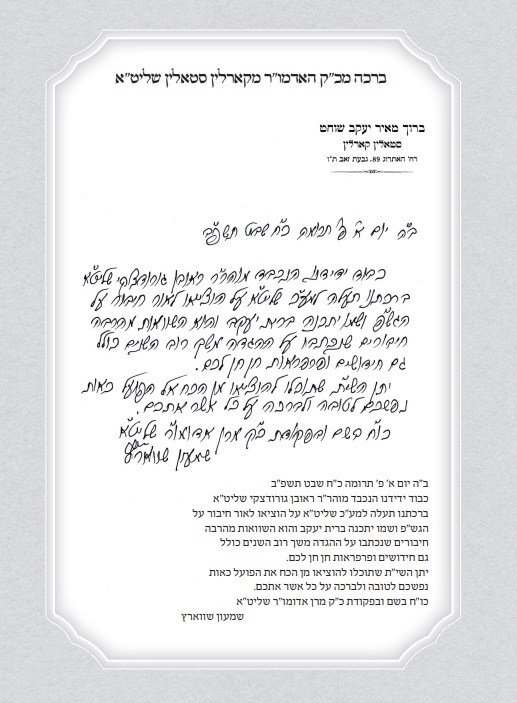 ברכה מכ"ק האדמו"ר מקארלין סטאלין שליט"א
ברוך מאיר יעקב שוחט
סטאלין קארלין
רח' האתרוג 89, גבעת זאב ת"ו
ב"ה יום א' פ' תרומה כ"ח שבט תשפ"ב
כבוד ידידנו הנכבד מוהר"ר ראובן גורודצקי שליט"א
ברכתנו תעלה למע"כ שליט"א על הוציאו לאור חיבור על
הגש"פ ושמו יתכנה ברית יעקב והוא השוואות מהרבה
חיבורים שנכתבו על ההגדה משך רוב השנים כולל
גם חידושים ופרפראות חן חן לכם.
יתן השי"ת שתוכלו להוציאו מן הכח אל הפועל כאות
נפשכם לטובה ולברכה על כל אשר אתכם.
כו"ח בשם ובפקודת כ"ק מרן אדומו"ר שליט"א
שמעון שווארץ
ב"ה יום א' פ' תרומה כ"ח שבט תשפ"ב
כבוד ידידנו הנכבד מוהר"ר ראובן גורודצקי שליט"א
ברכתנו תעלה למע"כ שליט"א על הוציאו לאור חיבור על
הגש"פ ושמו יתכנה ברית יעקב והוא השוואות מהרבה
חיבורים שנכתבו על ההגדה משך רוב השנים כולל
גם חידושים ופרפראות חן חן לכם.
יתן השי"ת שתוכלו להוציאו מן הכח את הפועל כאות
נפשכם לטובה ולברכה על כל אשר אתכם.
כו"ח בשם ובפקודת כ"ק מרן אדומו"ר שליט"א
שמעון שווארץ